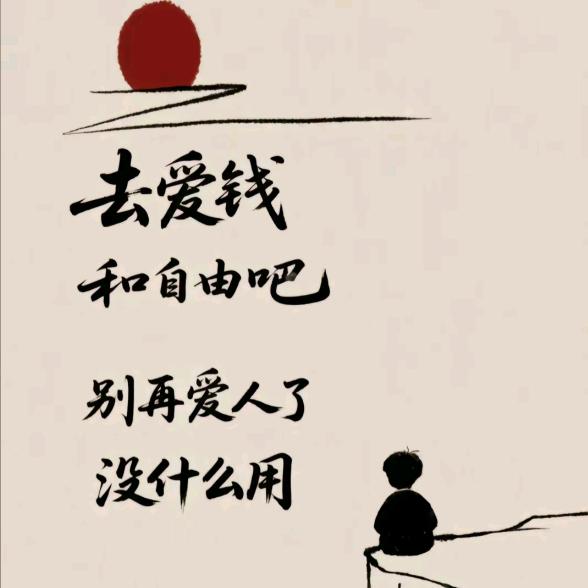 去爱钱
和自由吧
别再爱人了
没什么用